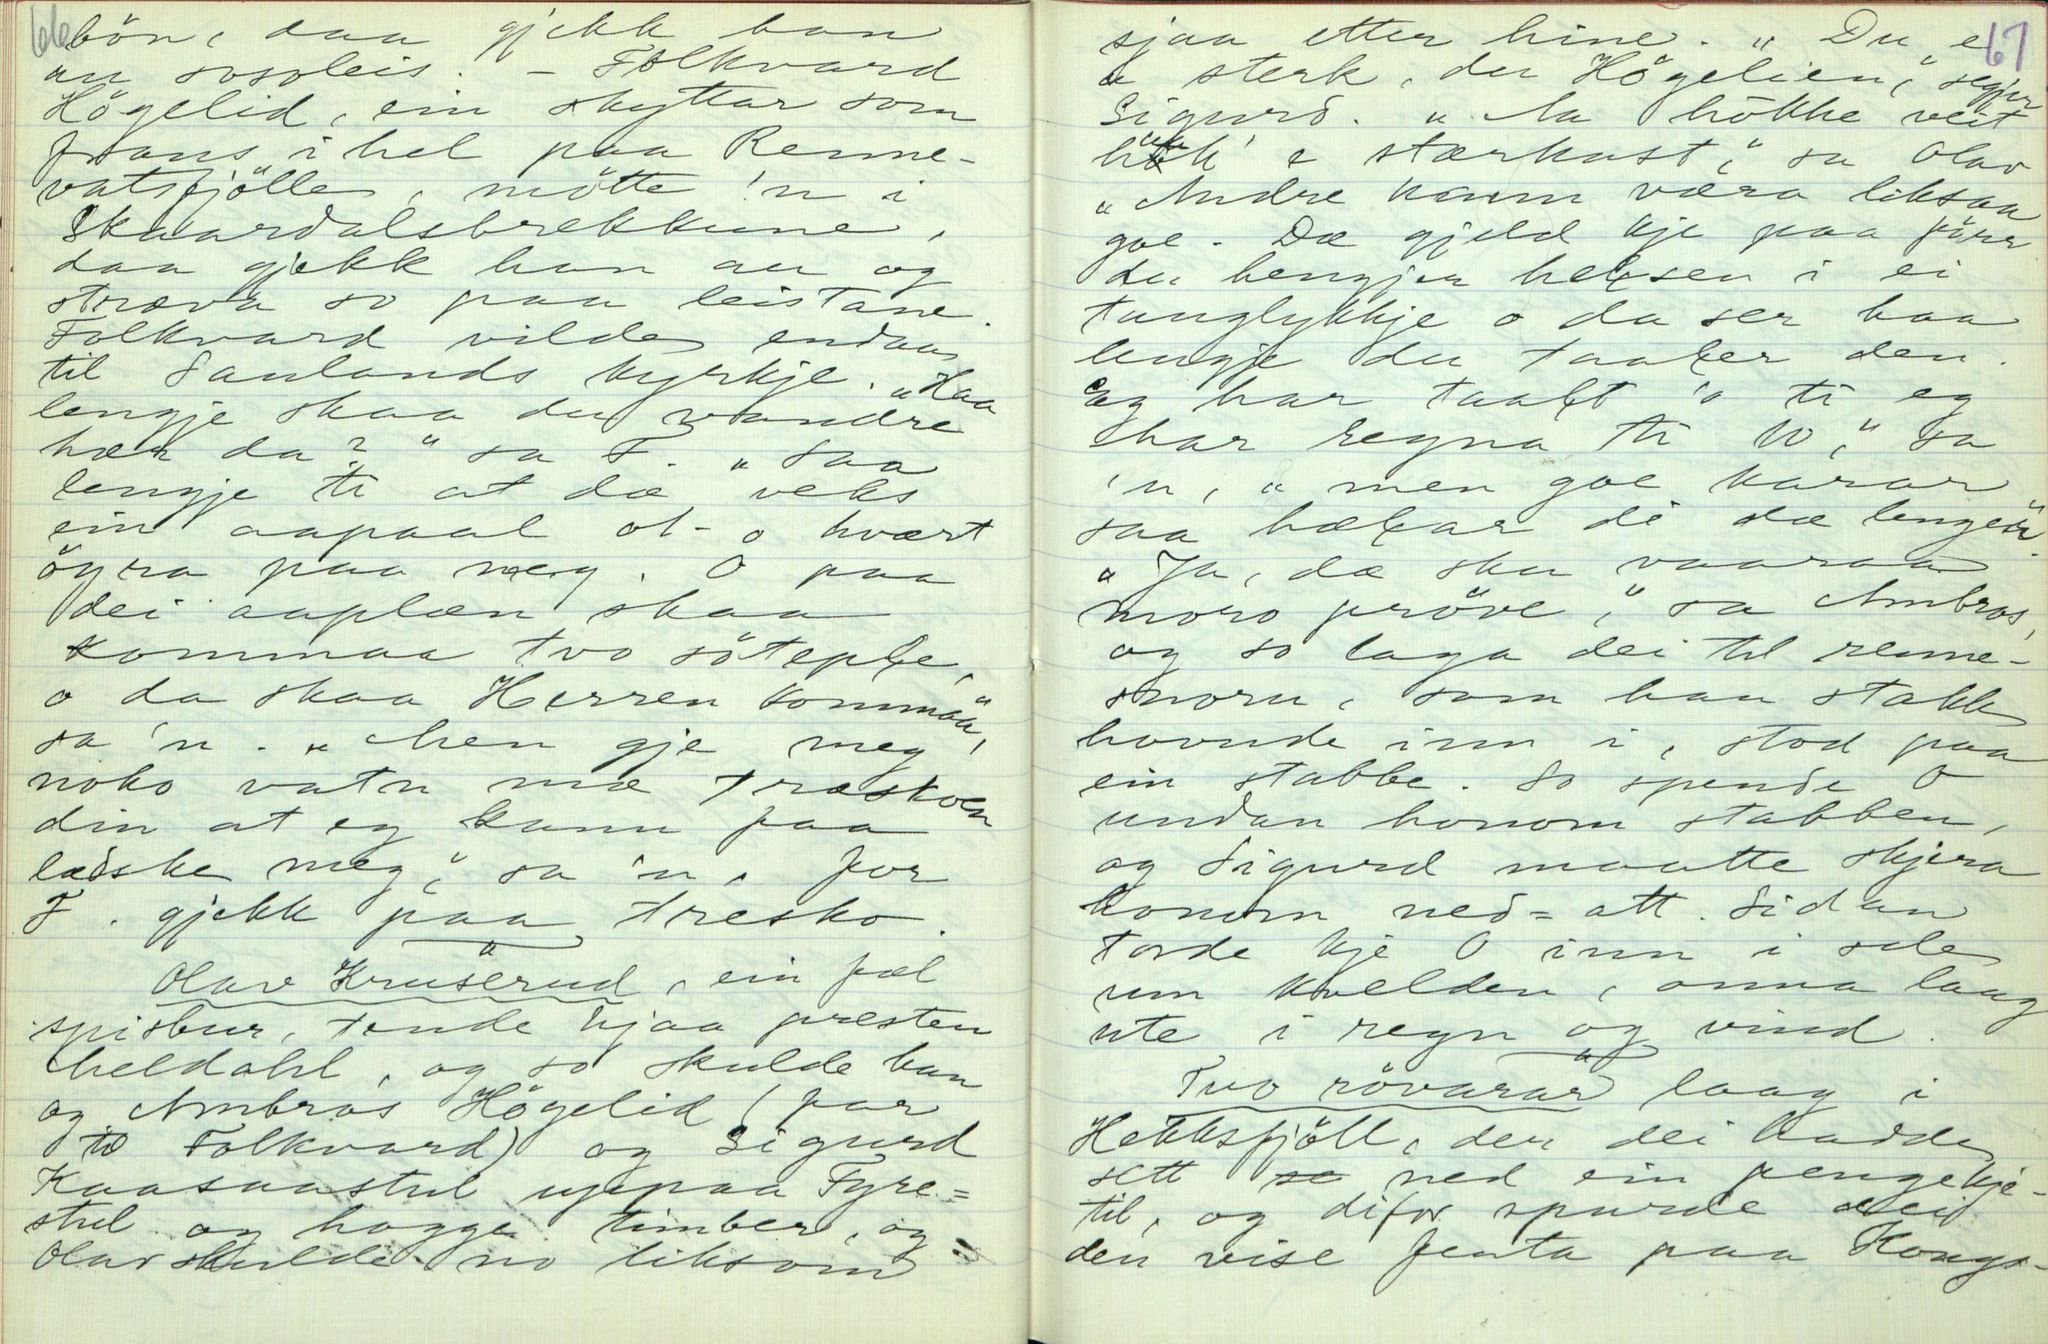 66
bön, daa gjekk han
au sosoleis. – Folkvard
Högelid, ein skyttar som
fraus i hel paa Renne-
vatsfjölle, mötte 'n i
Skaardalsbrekkune,
daa gjekk han au og
stræva so paa leistane.
Folkvard vilde endaa
til Saulands kyrkje. „Haa
lengje skaa du vandre
hær da?" sa F. „Saa
lengje ti at dæ veks
ein aapaal ot- o hvært
öyra paa meg. O paa
dei aaplæn skaa
kommaa tvo söteple,
o da skaa Herren kommaa,"
sa 'n. „Men gje meg
noko vatn mæ træskoen
din at eg kann faa
ledske meg," sa 'n, for
F. gjekk paa tresko.
Olav Kruserud, ein fæl
spisbur, tende hjaa presten
Meldahl, og so skulde han
og Ambros Högelid (far
to Folkvard) og Sigurd
Kaasaastul uppaa Fyre=
stul og hogge timber, og
Olav skulde no liksom
67
sjaa etter hine. „Du e
sterk, du Högelien," segjer
Sigurd. „Aa hökke veit
hökk' æ stærkast," sa Olav
„Andre kann væra liksaa
goe. Dæ gjeld kje paa förr
du hengjer helsen i ei
tauglykkje o da ser haa
lengje du taaler den.
eg har taalt 'o ti eg
har regna ti 10," sa
'n, „men goe karar
saa hæler di dæ lenger."
„Ja, dæ ska vaaraa
moro pröve," sa Ambros,
og so laga dei til renne-
snoru, som han stakk
hovude inn i, stod paa
ein stabbe. So spende O
undan honom stabben,
og Sigurd maatte skjera
honom ned=att. Sidan
torde kje O inn i sele
um kvelden, onna laag
ute i regn og vind.
Tvo rövarar laag i
Hekksfjöll, der dei hadde
sett ned ein pengekje-
til, og difor spurde dei
den vise jenta paa Kongs-